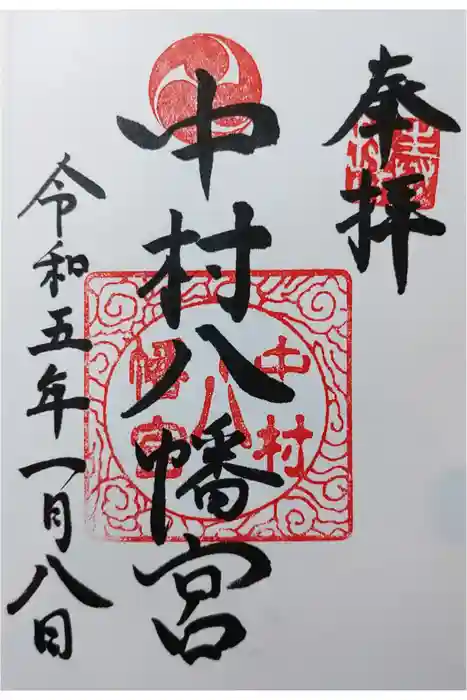 奉拝
中村八幡宮
中村
八
幡宮
令和五年一月八日